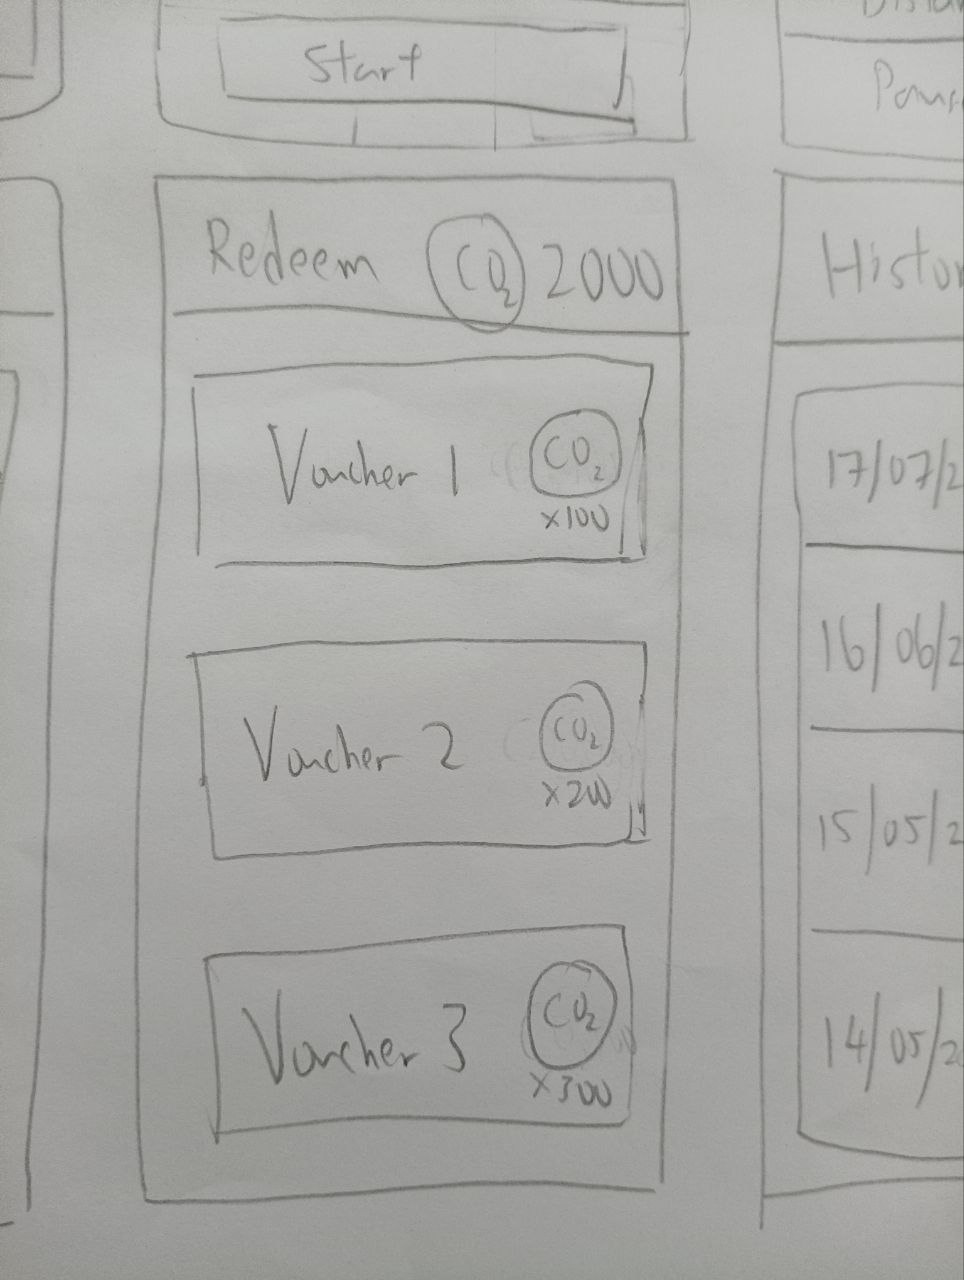 Start
Redeem CO₂ 2000
Voucher 1 CO₂
x100
Voucher 2 CO₂
x200
Voucher 3 CO₂
x300
Histor
17/07/2
16/06/2
15/05/2
14/05/2